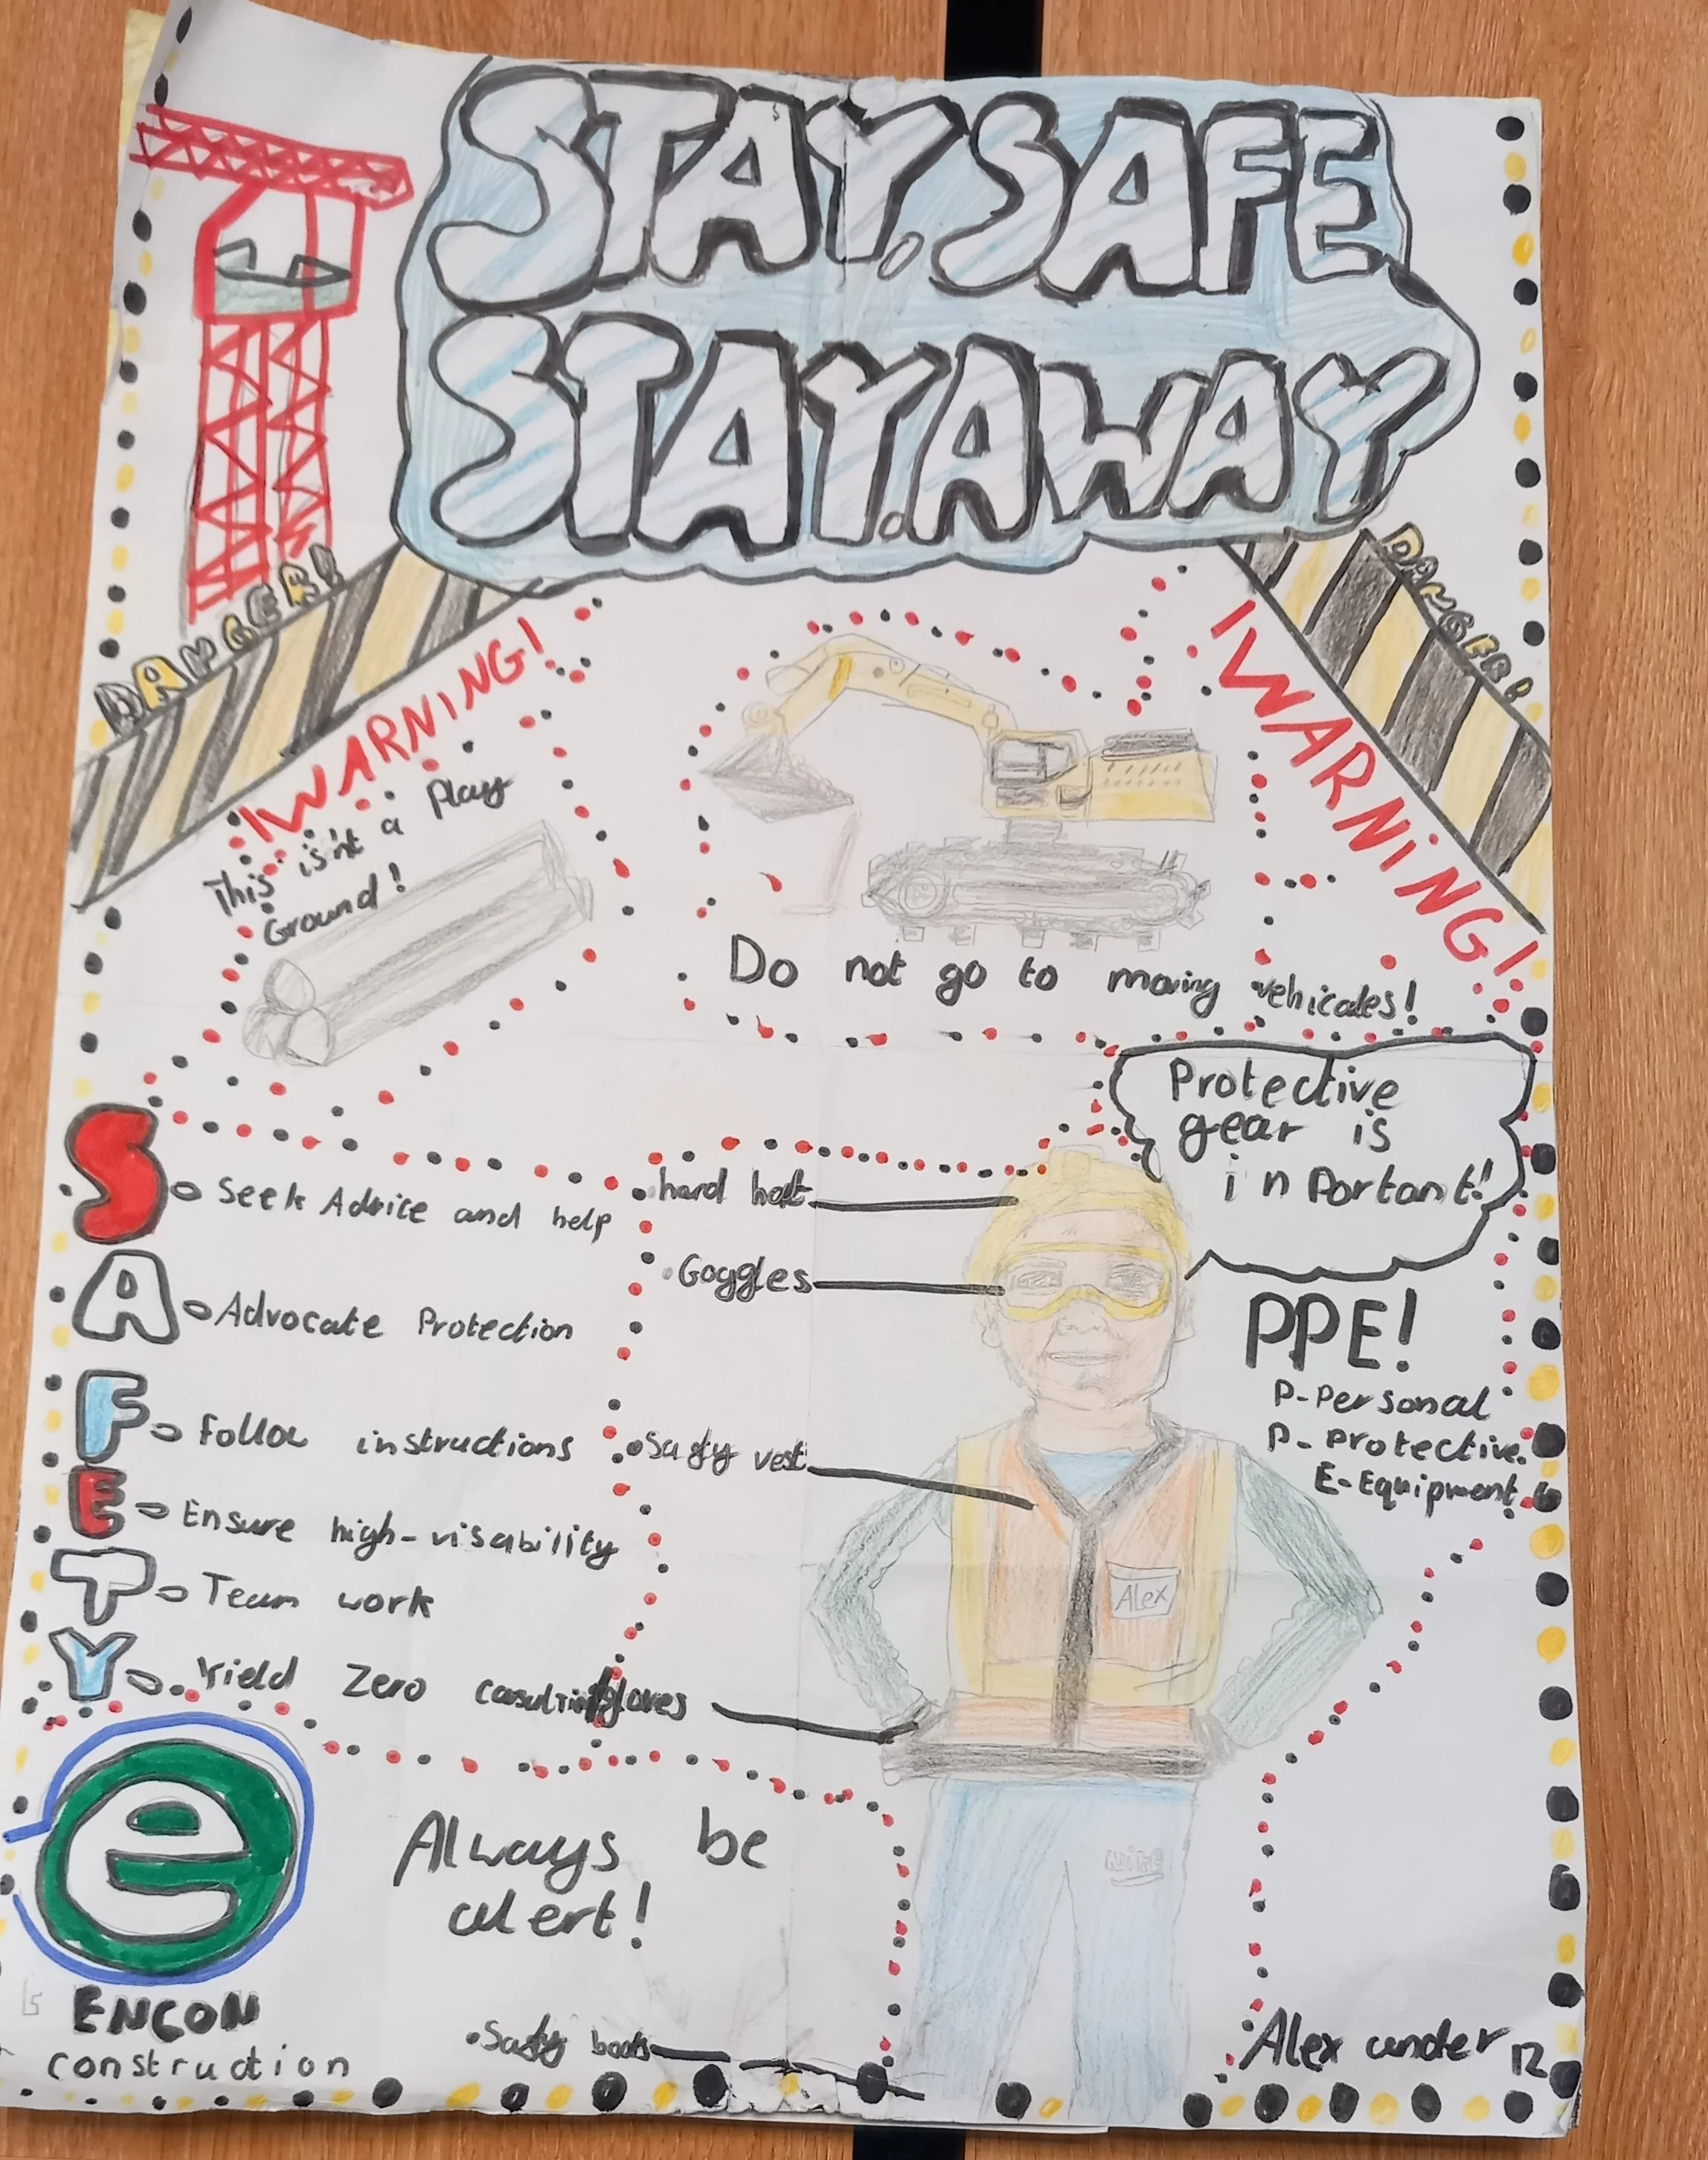 STAY.SAFE
STAY.AWAY
DANGER!
DANGER!
!WARNING!
!WARNING!
This isn't a Play
Ground!
Do not go to moving vehicales!
Protective
gear is
inportant!
S-Seek Advice and help
A-Advocate Protection
F-Follow instructions
E-Ensure high-visability
T-Team work
Y-Yield Zero
hard hat
Goggles
Safty vest
gloves
Safty boots
Alex
Nike
PPE!
P-Personal
P-Protective
E-Equipment
Always be
alert!
e
ENCON
construction
Alex under 12